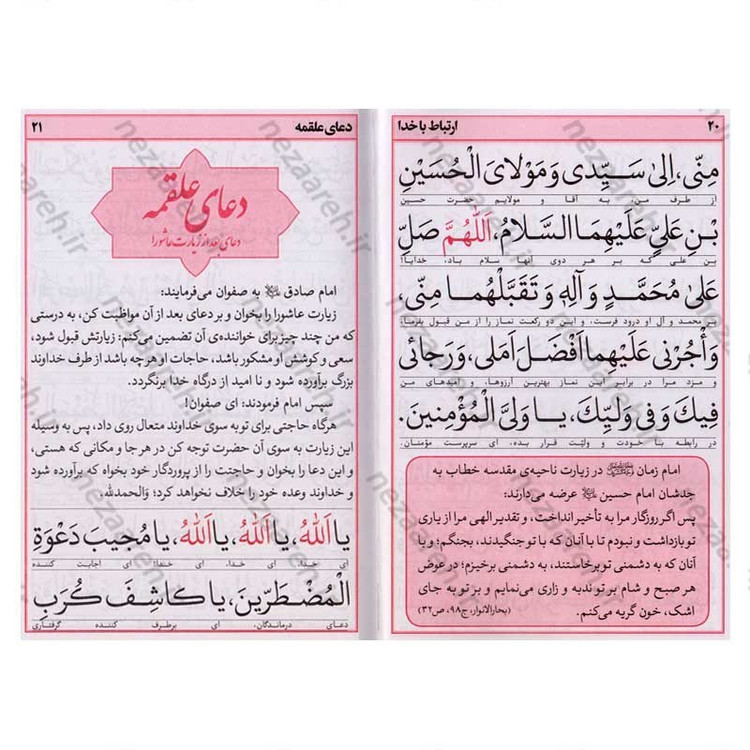 ۲۰
ارتباط با خدا
مِنّی، اِلیٰ سَیِّدی وَ مَوْلایَ الْحُسَیْنِ
از طرف من، به آقا و مولایم حضرت حسین
بْنِ عَلِیٍّ عَلَیْهِمَا السَّلامُ، اَللّٰهُمَّ صَلِّ
بن علی که بر هر دوی آنها سلام باد، خدایا!
عَلیٰ مُحَمَّدٍ وَ آلِهِ وَ تَقَبَّلْهُما مِنّی،
بر محمد و آل او درود فرست، و این دو رکعت نماز را از من قبول بفرما،
وَ أْجُرْنی عَلَیْهِما اَفْضَلَ اَمَلی، وَ رَجائی
و مزد مرا در برابر این نماز بهترین آرزوها، و امیدهای من
فیكَ وَ فی وَلِیِّكَ، یا وَلِیَّ الْمُؤْمِنینَ.
در رابطه با خودت و ولیّت قرار بده، ای سرپرست مؤمنان.
امام زمان در زیارت ناحیه‌ی مقدسه خطاب به
جدشان امام حسین عرضه می‌دارند:
پس اگر روزگار مرا به تأخیر انداخت، و تقدیر الهی مرا از یاری
تو بازداشت و نبودم تا با آنان که با تو جنگیدند، بجنگم؛ و با
آنان که به دشمنی تو برخاستند، به دشمنی برخیزم؛ در عوض
هر صبح و شام بر تو ندبه و زاری می‌نمایم و بر تو به جای
اشک، خون گریه می‌کنم. (بحارالانوار، ج۹۸، ص۳۲)
دعای علقمه
۲۱
دعای علقمه
دعای بعد از زیارت عاشورا
امام صادق به صفوان می‌فرمایند:
زیارت عاشورا را بخوان و بر دعای بعد از آن مواظبت کن، به درستی
که من چند چیز برای خواننده‌ی آن تضمین می‌کنم: زیارتش قبول شود،
سعی و کوشش او مشکور باشد، حاجات او هر چه باشد از طرف خداوند
بزرگ برآورده شود و نا امید از درگاه خدا برنگردد.
سپس امام فرمودند: ای صفوان!
هرگاه حاجتی برای تو به سوی خداوند متعال روی داد، پس به وسیله
این زیارت به سوی آن حضرت توجه کن در هر جا و مکانی که هستی،
و این دعا را بخوان و حاجتت را از پروردگار خود بخواه که برآورده شود
و خداوند وعده خود را خلاف نخواهد کرد؛ وَالحمدلله.
یا اَللّٰهُ، یا اَللّٰهُ، یا اَللّٰهُ، یا مُجیبَ دَعْوَةِ
ای خدا، ای خدا، ای خدا! ای اجابت کننده
الْمُضْطَرّینَ، یا کاشِفَ کُرَبِ
دعای درماندگان، ای برطرف کننده گرفتاری
nezaareh.ir